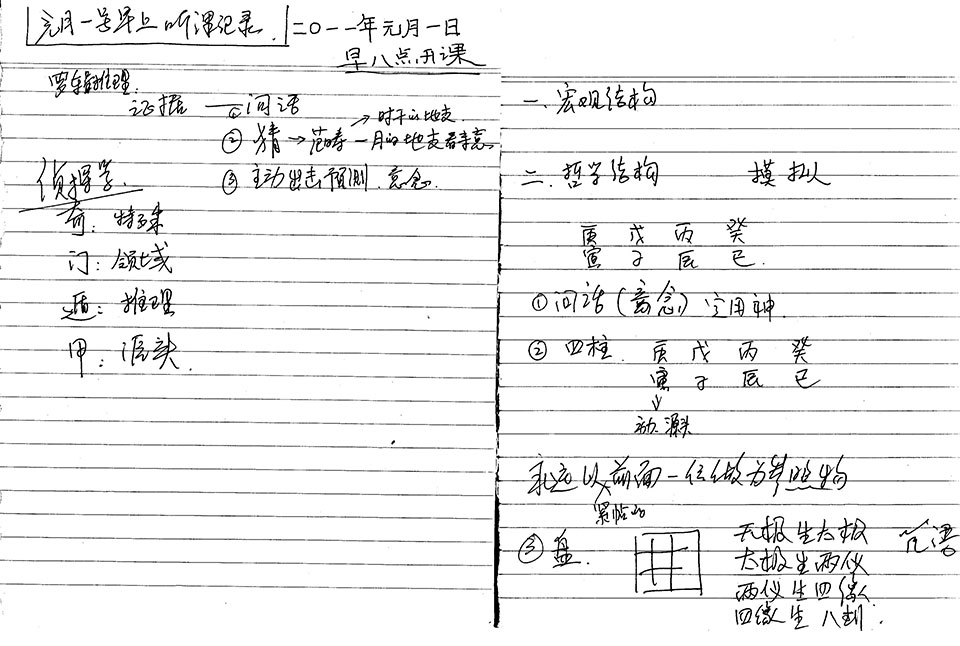 元月一号早上听课记录 二〇一一年元月一日
早八点开课
罗辑推理
证据 ① 问话
→ 时干的地支
② 猜 → 范畴 — 月的地支看来意
③ 主动出击预测 意念
侦探学
奇：特殊
门：领域
遁：推理
甲：源头
一、宏观结构
二、哲学结构 摸拟
庚 戊 丙 癸
寅 子 辰 巳
① 问话（意念）定用神
② 四柱 庚 戊 丙 癸
寅 子 辰 巳
↓
动源头
永远以前面一位做为参照物
③ 盘 无极生太极
太极生两仪
两仪生四像
四像生八卦